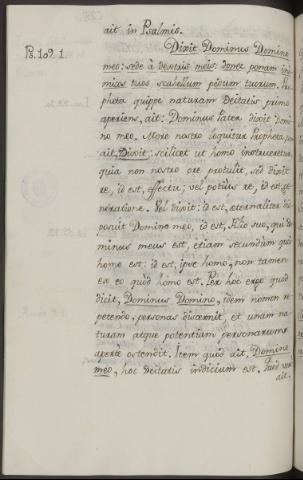 ait in Psalmis.
Ps. 109. 1.
Dixit Dominus Domino
meo: sede à dextris meis: donec ponam ini-
micos tuos scabellum pedum tuorum. Pro-
pheta quippe naturam Deitatis primo
aperiens, ait: Dominus Pater dixit Domi-
no meo. More nostro loquitur Propheta, cum
ait, Dixit: scilicet ut homo instrueretur,
quia non nostro ore protulit, sed dixit
re, id est, effectu; vel potius re, id est, ge-
neratione. Vel dixit: id est, æternaliter dis-
posuit Domino meo, id est, Filio suo, qui Do-
minus meus est, etiam secundùm quod
homo est: id est, ipse homo, non tamen
ex eo quòd homo est. Per hoc ergo quòd
dicit, Dominus Domino, idem nomen re-
petendo, personas discernit, et unam na-
turam atque potentiam personarum
apertè ostendit. Item quòd ait, Domino
meo, hoc Deitatis indicium est. Quòd
ait.